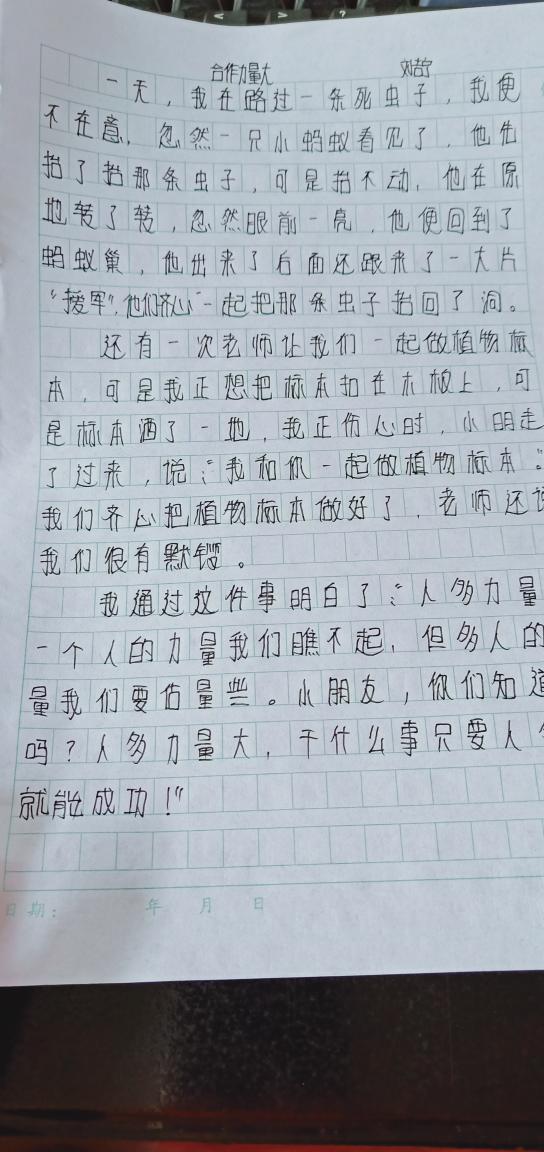 合作力量大 刘喆
一天，我在路过一条死虫子，我便
不在意，忽然一只小蚂蚁看见了，他先
抬了抬那条虫子，可是抬不动，他在原
地转了转，忽然眼前一亮，他便回到了
蚂蚁巢，他出来了后面还跟来了一大片
“援军”，他们齐心一起把那条虫子抬回了洞。
还有一次老师让我们一起做植物标
本，可是我正想把标本扣在木板上，可
是标本洒了一地，我正伤心时，小明走
了过来，说：“我和你一起做植物标本。”
我们齐心把植物标本做好了，老师还说
我们很有默锲。
我通过这件事明白了：“人多力量
一个人的力量我们瞧不起，但多人的
量我们要估量些。小朋友，你们知道
吗？人多力量大，干什么事只要人
就能成功！”
日期： 年 月 日